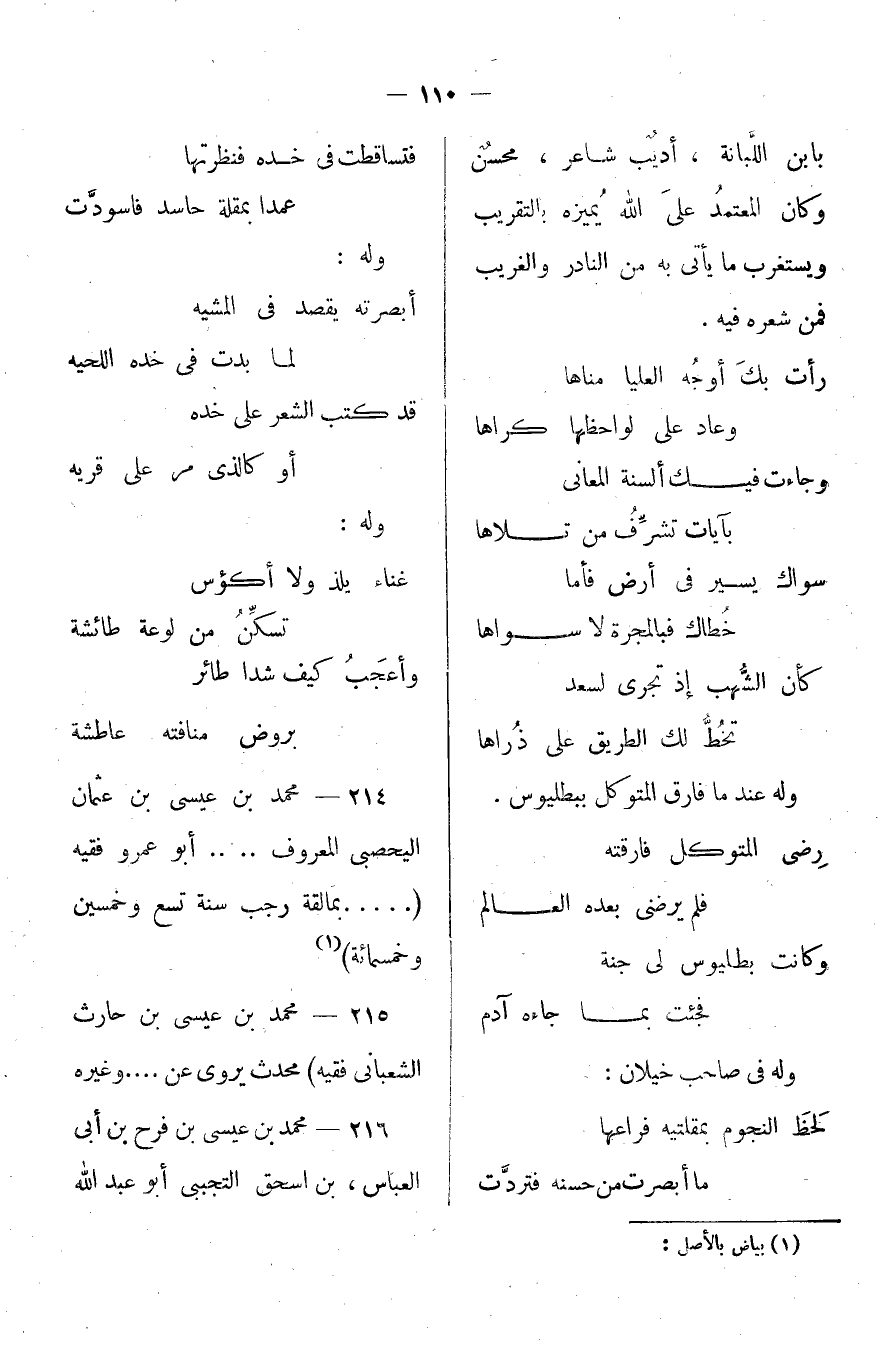 — ١١٠ —
بابن اللَّبانة ، أديبٌ شاعر ، محسنٌ
وكان المعتمدُ علىَ الله يُميزه بالتقريب
ويستغرب ما يأتى به من النادر والغريب
فمن شعره فيه .
رأت بكَ أوجُه العليا مناها
وعاد على لواحظها كراها
وجاءت فيـك ألسنة المعانى
بآيات تشرِّفُ من تـلاها
سواك يسـير فى أرض فأما
خُطاك فبالمجرة لا سـواها
كأن الشُّهب إذ تجرى لسعد
تخُطُّ لك الطريق على ذُراها
وله عند ما فارق المتوكل ببطليوس .
رضى المتوكل فارقته
فلم يرضنى بعده العـالم
وكانت بطليوس لى جنة
فجئت بمـا جاءه آدم
وله فى صاحب خيلان :
لَحَظَ النجوم بمقلتيه فراعها
ما أبصرت من حسنه فتردَّت
فتساقطت فى خـده فنظرتها
عمدا بمقلة حاسد فاسودَّت
وله :
أبصرته يقصد فى المشيه
لمـا بدت فى خده اللحيه
قد كتب الشعر على خده
أو كالذى مر على قريه
وله :
غناء يلذ ولا أكؤس
تسكِّنُ من لوعة طائشة
وأعجَبُ كيف شدا طائر
بروض منافته عاطشة
٢١٤ — محمد بن عيسى بن عثمان
اليحصبى المعروف .. .. أبو عمرو فقيه
(.....بمالقة رجب سنة تسع وخمسين
وخمسمائة)(١)
٢١٥ — محمد بن عيسى بن حارث
الشعبانى فقيه) محدث يروى عن ....وغيره
٢١٦ — محمد بن عيسى بن فرح بن أبى
العباس ، بن اسحق التجيبى أبو عبد الله
(١) بياض بالأصل :